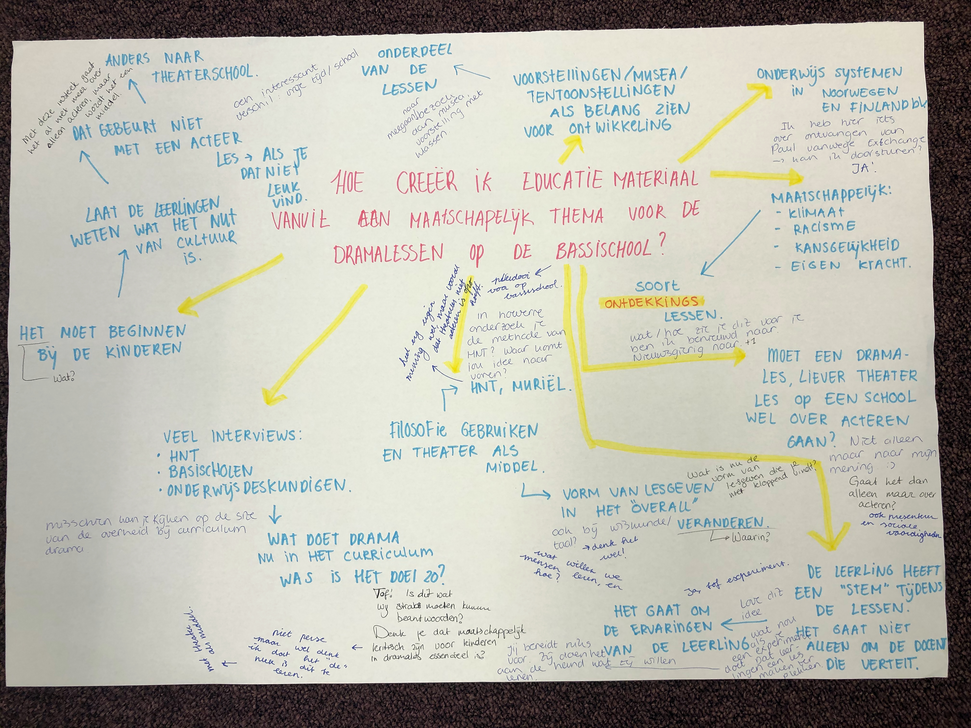 ANDERS NAAR
THEATERSCHOOL.
Met deze insteek gaat
al niet meer over
het alleen acteren, maar
wordt het een
middel
DAT GEBEURT NIET
MET EEN ACTEER
LES → ALS JE
DAT NIET
LEUK
VIND.
LAAT DE LEERLINGEN
WETEN WAT HET NUT
VAN CULTUUR
IS.
HET MOET BEGINNEN
BIJ DE KINDEREN
Wat?
een interessant
verschil tijd/school
ONDERDEEL
VAN DE
LESSEN
naar
museum
voorstelling met
VOORSTELLINGEN/MUSEA/
TENTOONSTELLINGEN
ALS BELANG ZIEN
VOOR ONTWIKKELING
ONDERWIJS SYSTEMEN
IN NOORWEGEN
EN FINLAND bv.
Ik heb hier iets
over ontvangen van
Paul vanwege Exchange
→ kan ik doorsturen?
JA!
HOE CREEËR IK EDUCATIE MATERIAAL
VANUIT EEN MAATSCHAPELIJK THEMA VOOR DE
DRAMALESSEN OP DE BASSISCHOOL?
MAATSCHAPPELIJK:
- KLIMAAT
- RACISME
- KANSGELIJKHEID
- EIGEN KRACHT.
SOORT
ONTDEKKINGS
LESSEN.
wat/hoe zie je dit voor je
ben ik benieuwd naar
Nieuwsgierig naar +1
pleidooi
voor op
basisschool.
in hoeverre
onderzoek je
de methode van
HNT? Waar komt
jou idee naar
voren?
HNT, MURIËL.
FILOSOFIE GEBRUIKEN
EN THEATER ALS
MIDDEL.
VORM VAN LESGEVEN
IN HET "OVERALL"
VERANDEREN.
Waarin?
Wat is nu de
vorm van
lesgeven die je
niet kloppend vindt?
ook bij wiskunde/
taal?
→ denk het
wel!
wat willen we
mensen leren, en
hoe?
MOET EEN DRAMA-
LES, LIEVER THEATER
LES OP EEN SCHOOL
WEL OVER ACTEREN
GAAN?
Niet alleen
maar naar mijn
mening :)
Gaat het dan
alleen maar over
acteren?
ook presenteren
en sociale
vaardigheden
VEEL INTERVIEWS:
· HNT
· BASISCHOLEN
· ONDERWIJSDESKUNDIGEN.
misschien kan je kijken op de site
van de overheid bij curriculum
drama
WAT DOET DRAMA
NU IN HET CURRICULUM
WAS IS HET DOEL ZO?
Tof! Is dit wat
wij straks moeten kunnen
beantwoorden?
Denk je dat maatschappelijk
kritisch zijn voor kinderen
in dramales essentieel is?
niet perse
maar wel denk
ik dat het "de"
plek is dit te
leren.
met theater
als middel.
DE LEERLING HEEFT
EEN "STEM" TIJDENS
DE LESSEN.
HET GAAT NIET
ALLEEN OM DE DOCENT
DIE VERTELT.
ja, tof experiment.
Love dit
idee
HET GAAT OM
DE ERVARINGEN
VAN DE LEERLING